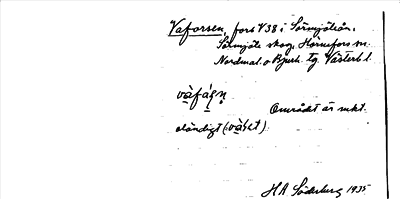 Vaforsen, fors V38 i Sörmjöleån,
Sörmjöle skog, Hörnefors sn.
Nordmal. o Bjurh. tg. Västerb. l.
våfáṣn̥
Området är mkt.
eländigt (:våtet)
HA Söderberg 1935